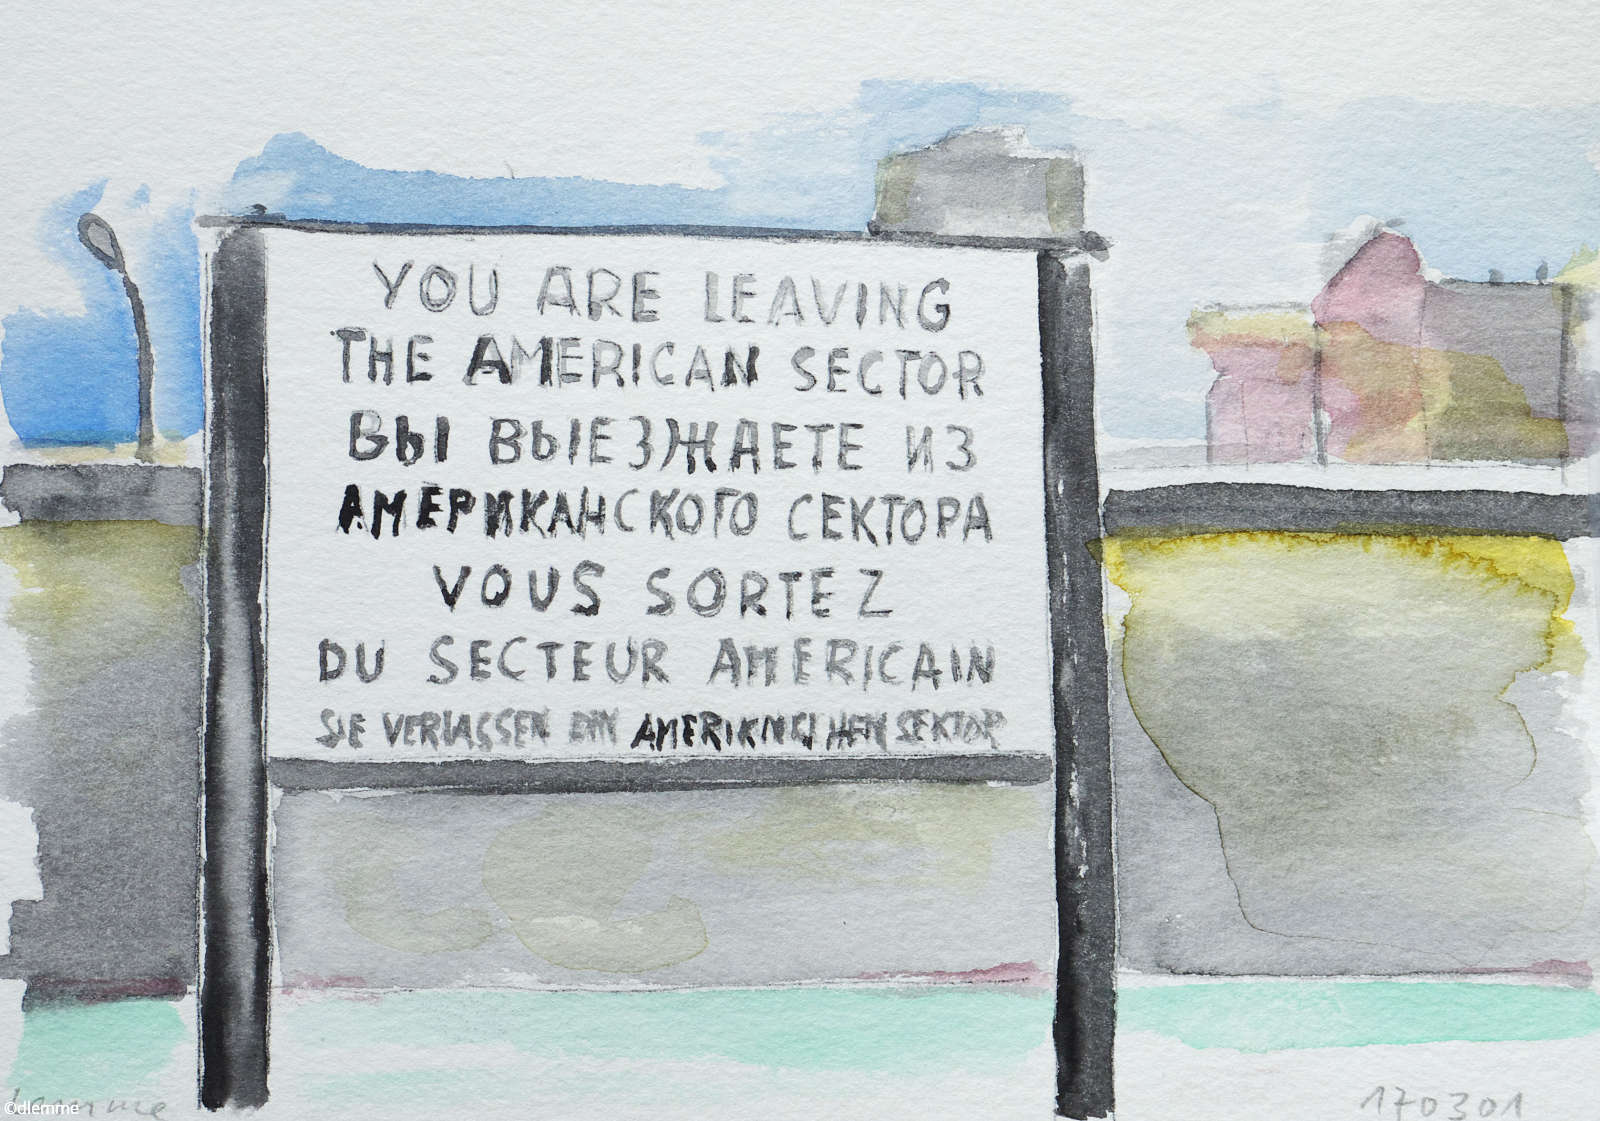 YOU ARE LEAVING
THE AMERICAN SECTOR
ВЫ ВЫЕЗЖАЕТЕ ИЗ
АМЕРИКАНСКОГО СЕКТОРА
VOUS SORTEZ
DU SECTEUR AMERICAIN
SIE VERLASSEN SEKTOR
©dlemme
170301